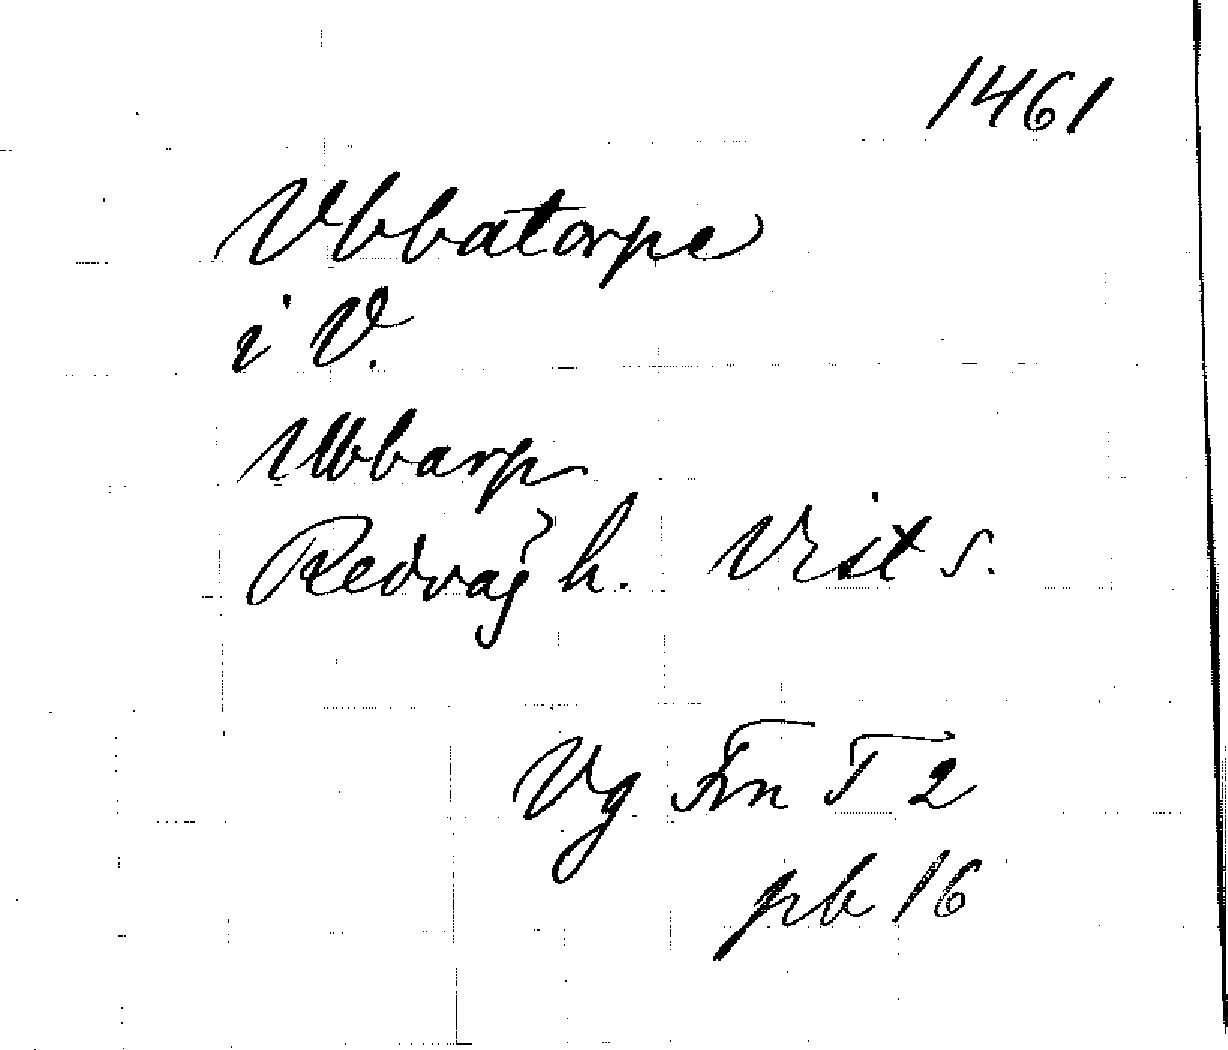 1461
Vbbatorpe
i V.
Ubbarp
Redväg h. Vist s.
Vg Fm T 2
pb 16